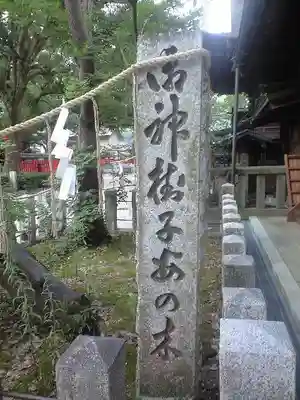 御神樹子安の木